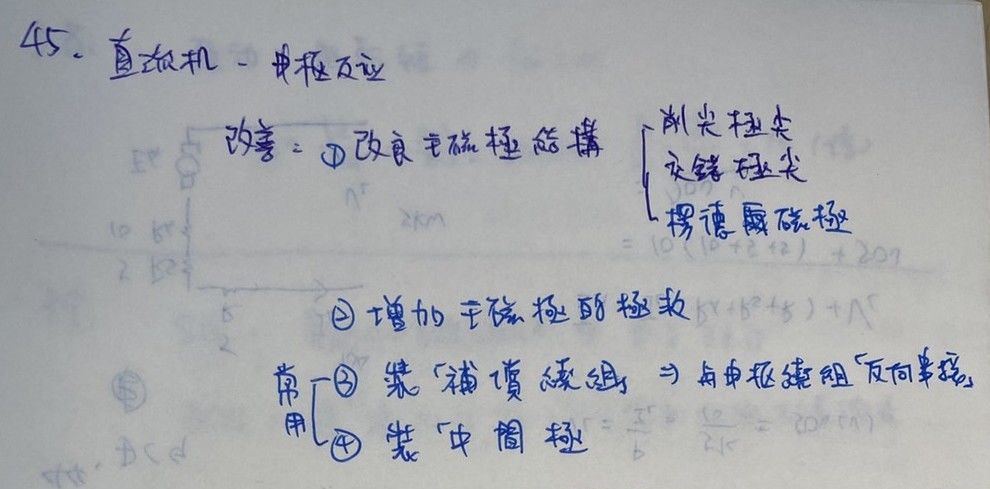 45. 直流机 - 电枢反应
改善：① 改良主磁極結構
削尖極尖
交錯極尖
楞德爾磁極
② 增加主磁極的極数
常用
③ 裝「補償繞組」 ⇒ 与电枢繞組「反向串接」
④ 裝「中間極